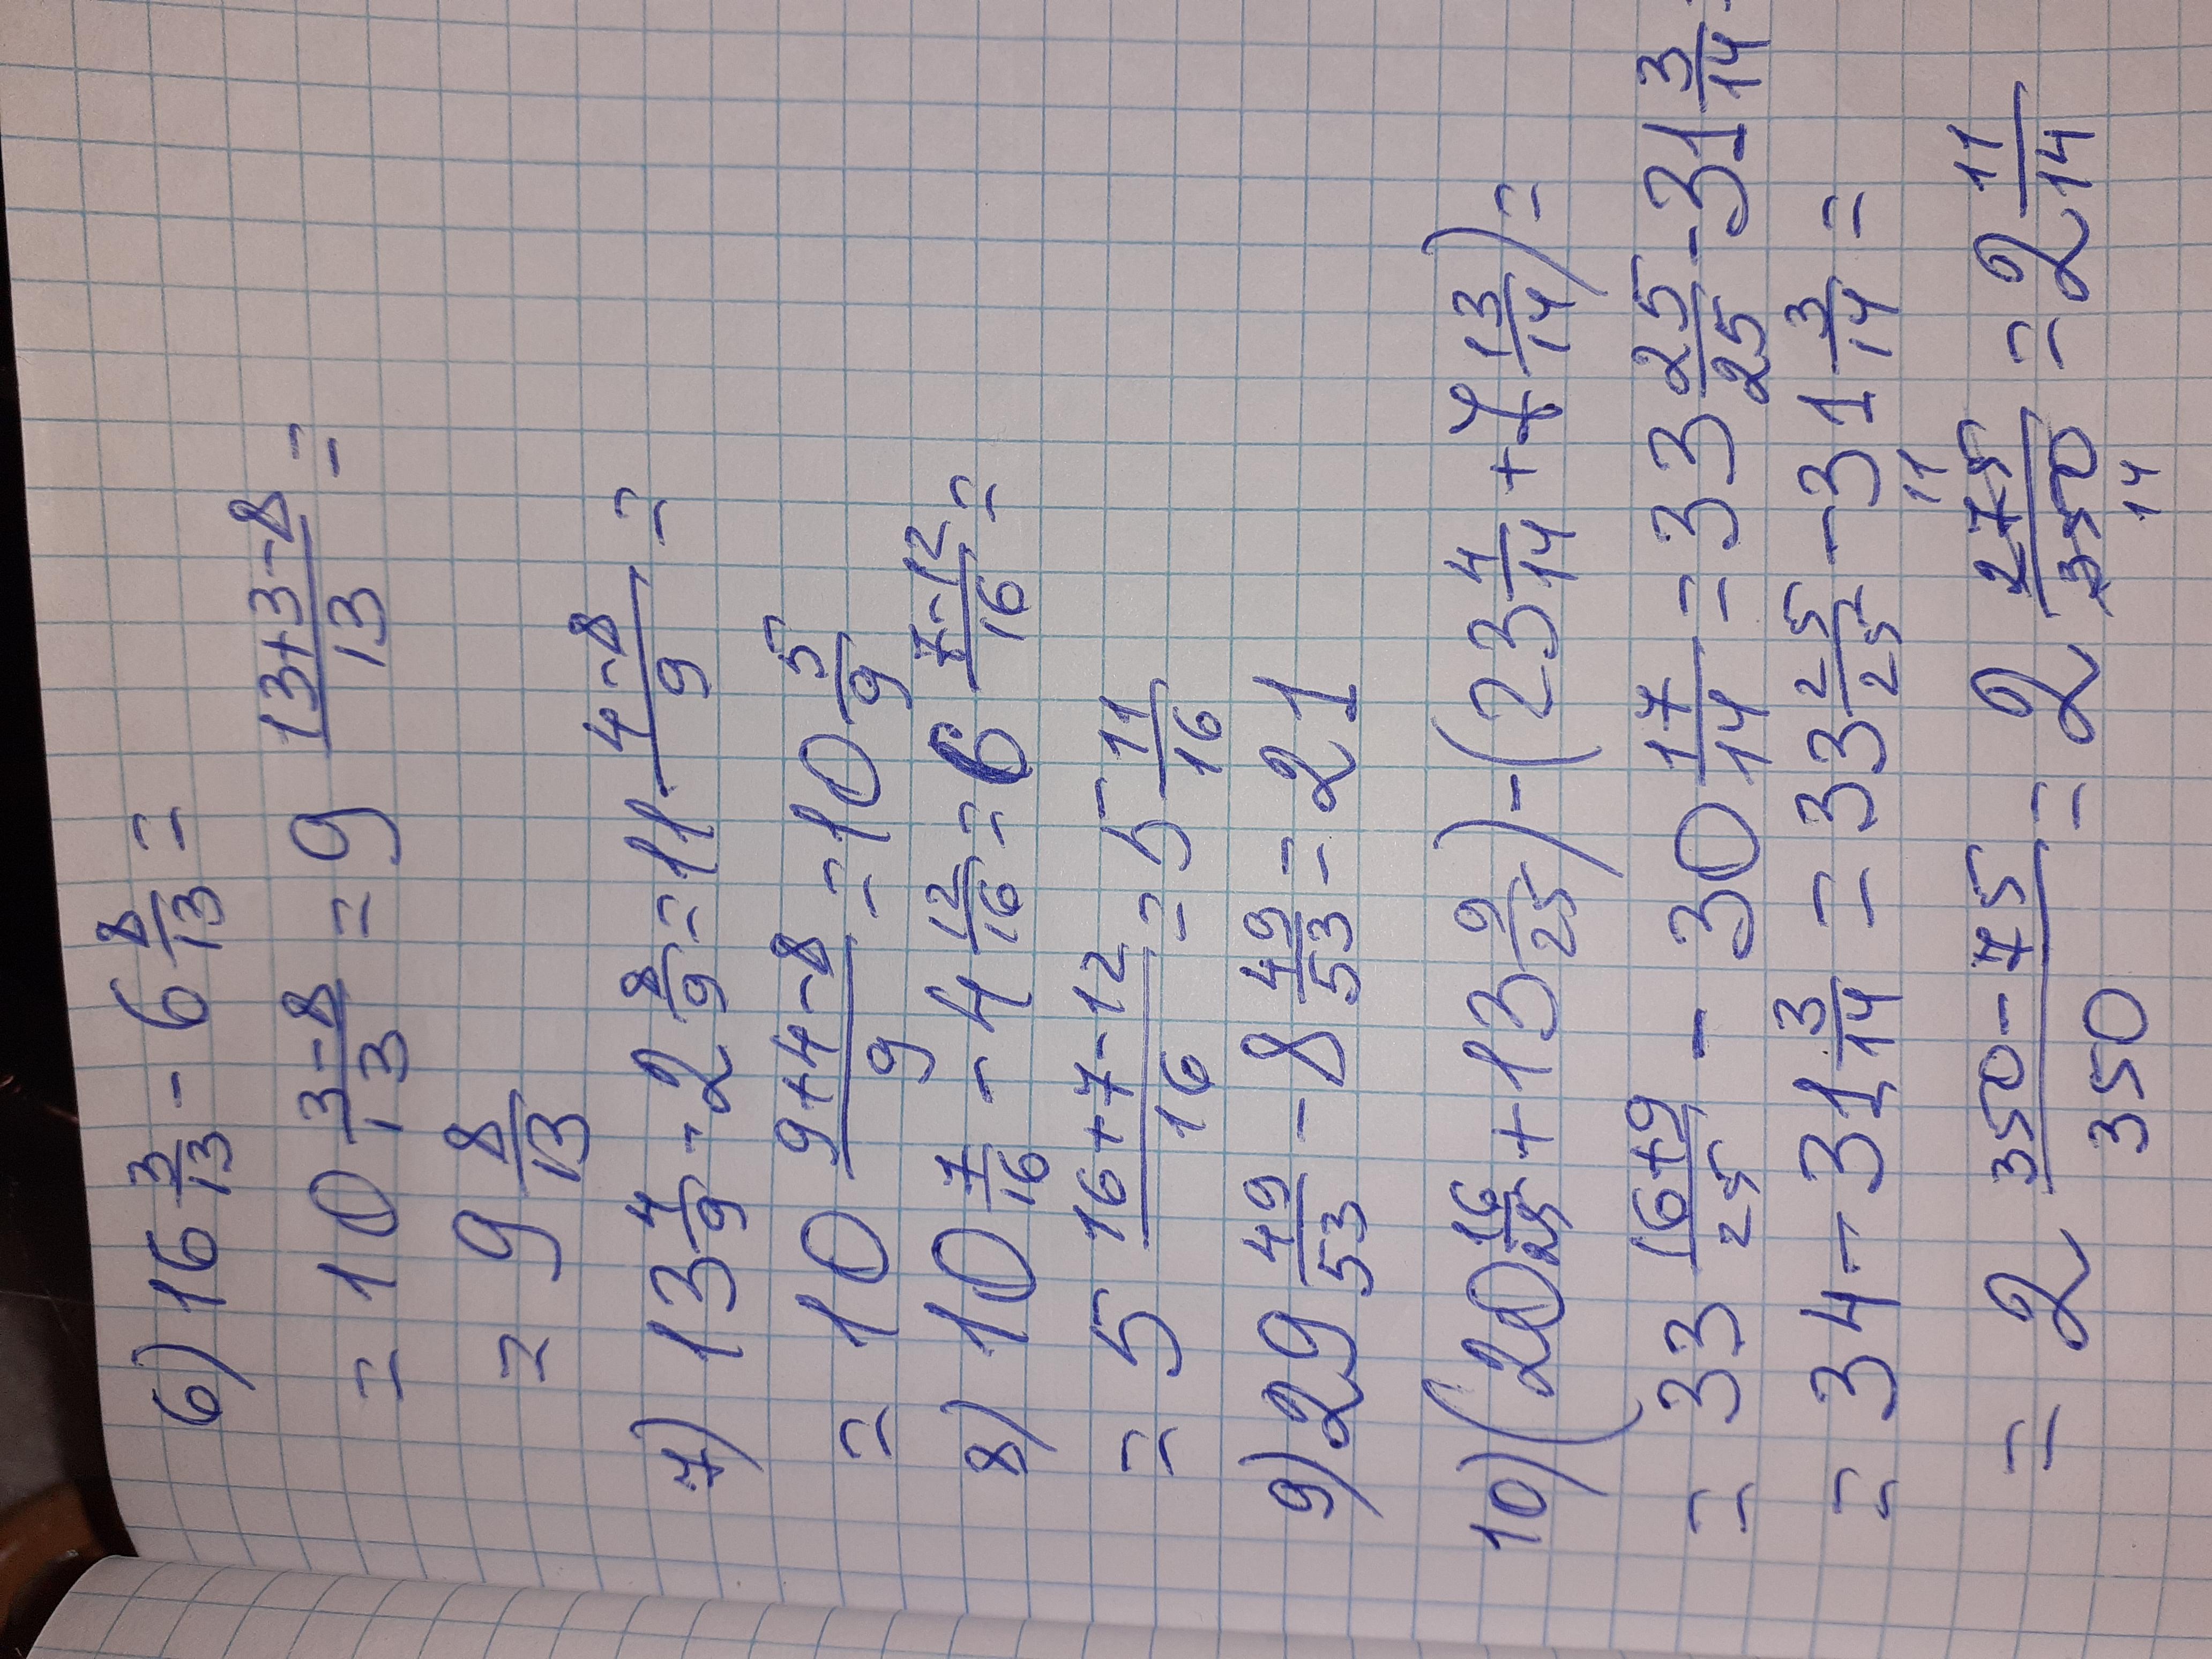 6) 16 3/13 - 6 8/13 =
= 10 3-8/13 = 9 13+3-8/13 =
= 9 8/13
7) 13 4/9 - 2 8/9 = 11 4-8/9 =
= 10 9+4-8/9 = 10 5/9
8) 10 7/16 - 4 12/16 = 6 7-12/16 =
= 5 16+7-12/16 = 5 11/16
9) 29 49/53 - 8 49/53 = 21
10) (20 16/25 + 13 9/25) - (23 4/14 + 7 13/14) =
= 33 16+9/25 - 30 17/14 = 33 25/25 - 31 3/14 =
= 34 - 31 3/14 = 33 25/25 - 31 3/14 =
= 2 350-75/350 = 2 275/350 = 2 11/14
11
14